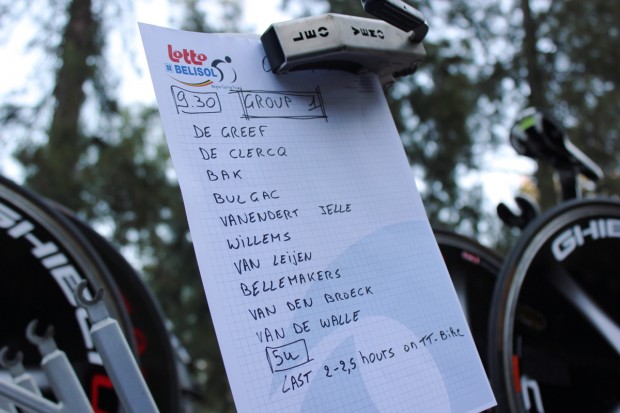 LOTTO
BELISOL
9.30 GROUP 1
DE GREEF
DE CLERCQ
BAK
BULGAC
VANENDERT JELLE
WILLEMS
VAN LEIJEN
BELLEMAKERS
VAN DEN BROECK
VAN DE WALLE
5u
LAST 2-2,5 hours on TT-Bike
GHIE
GHI